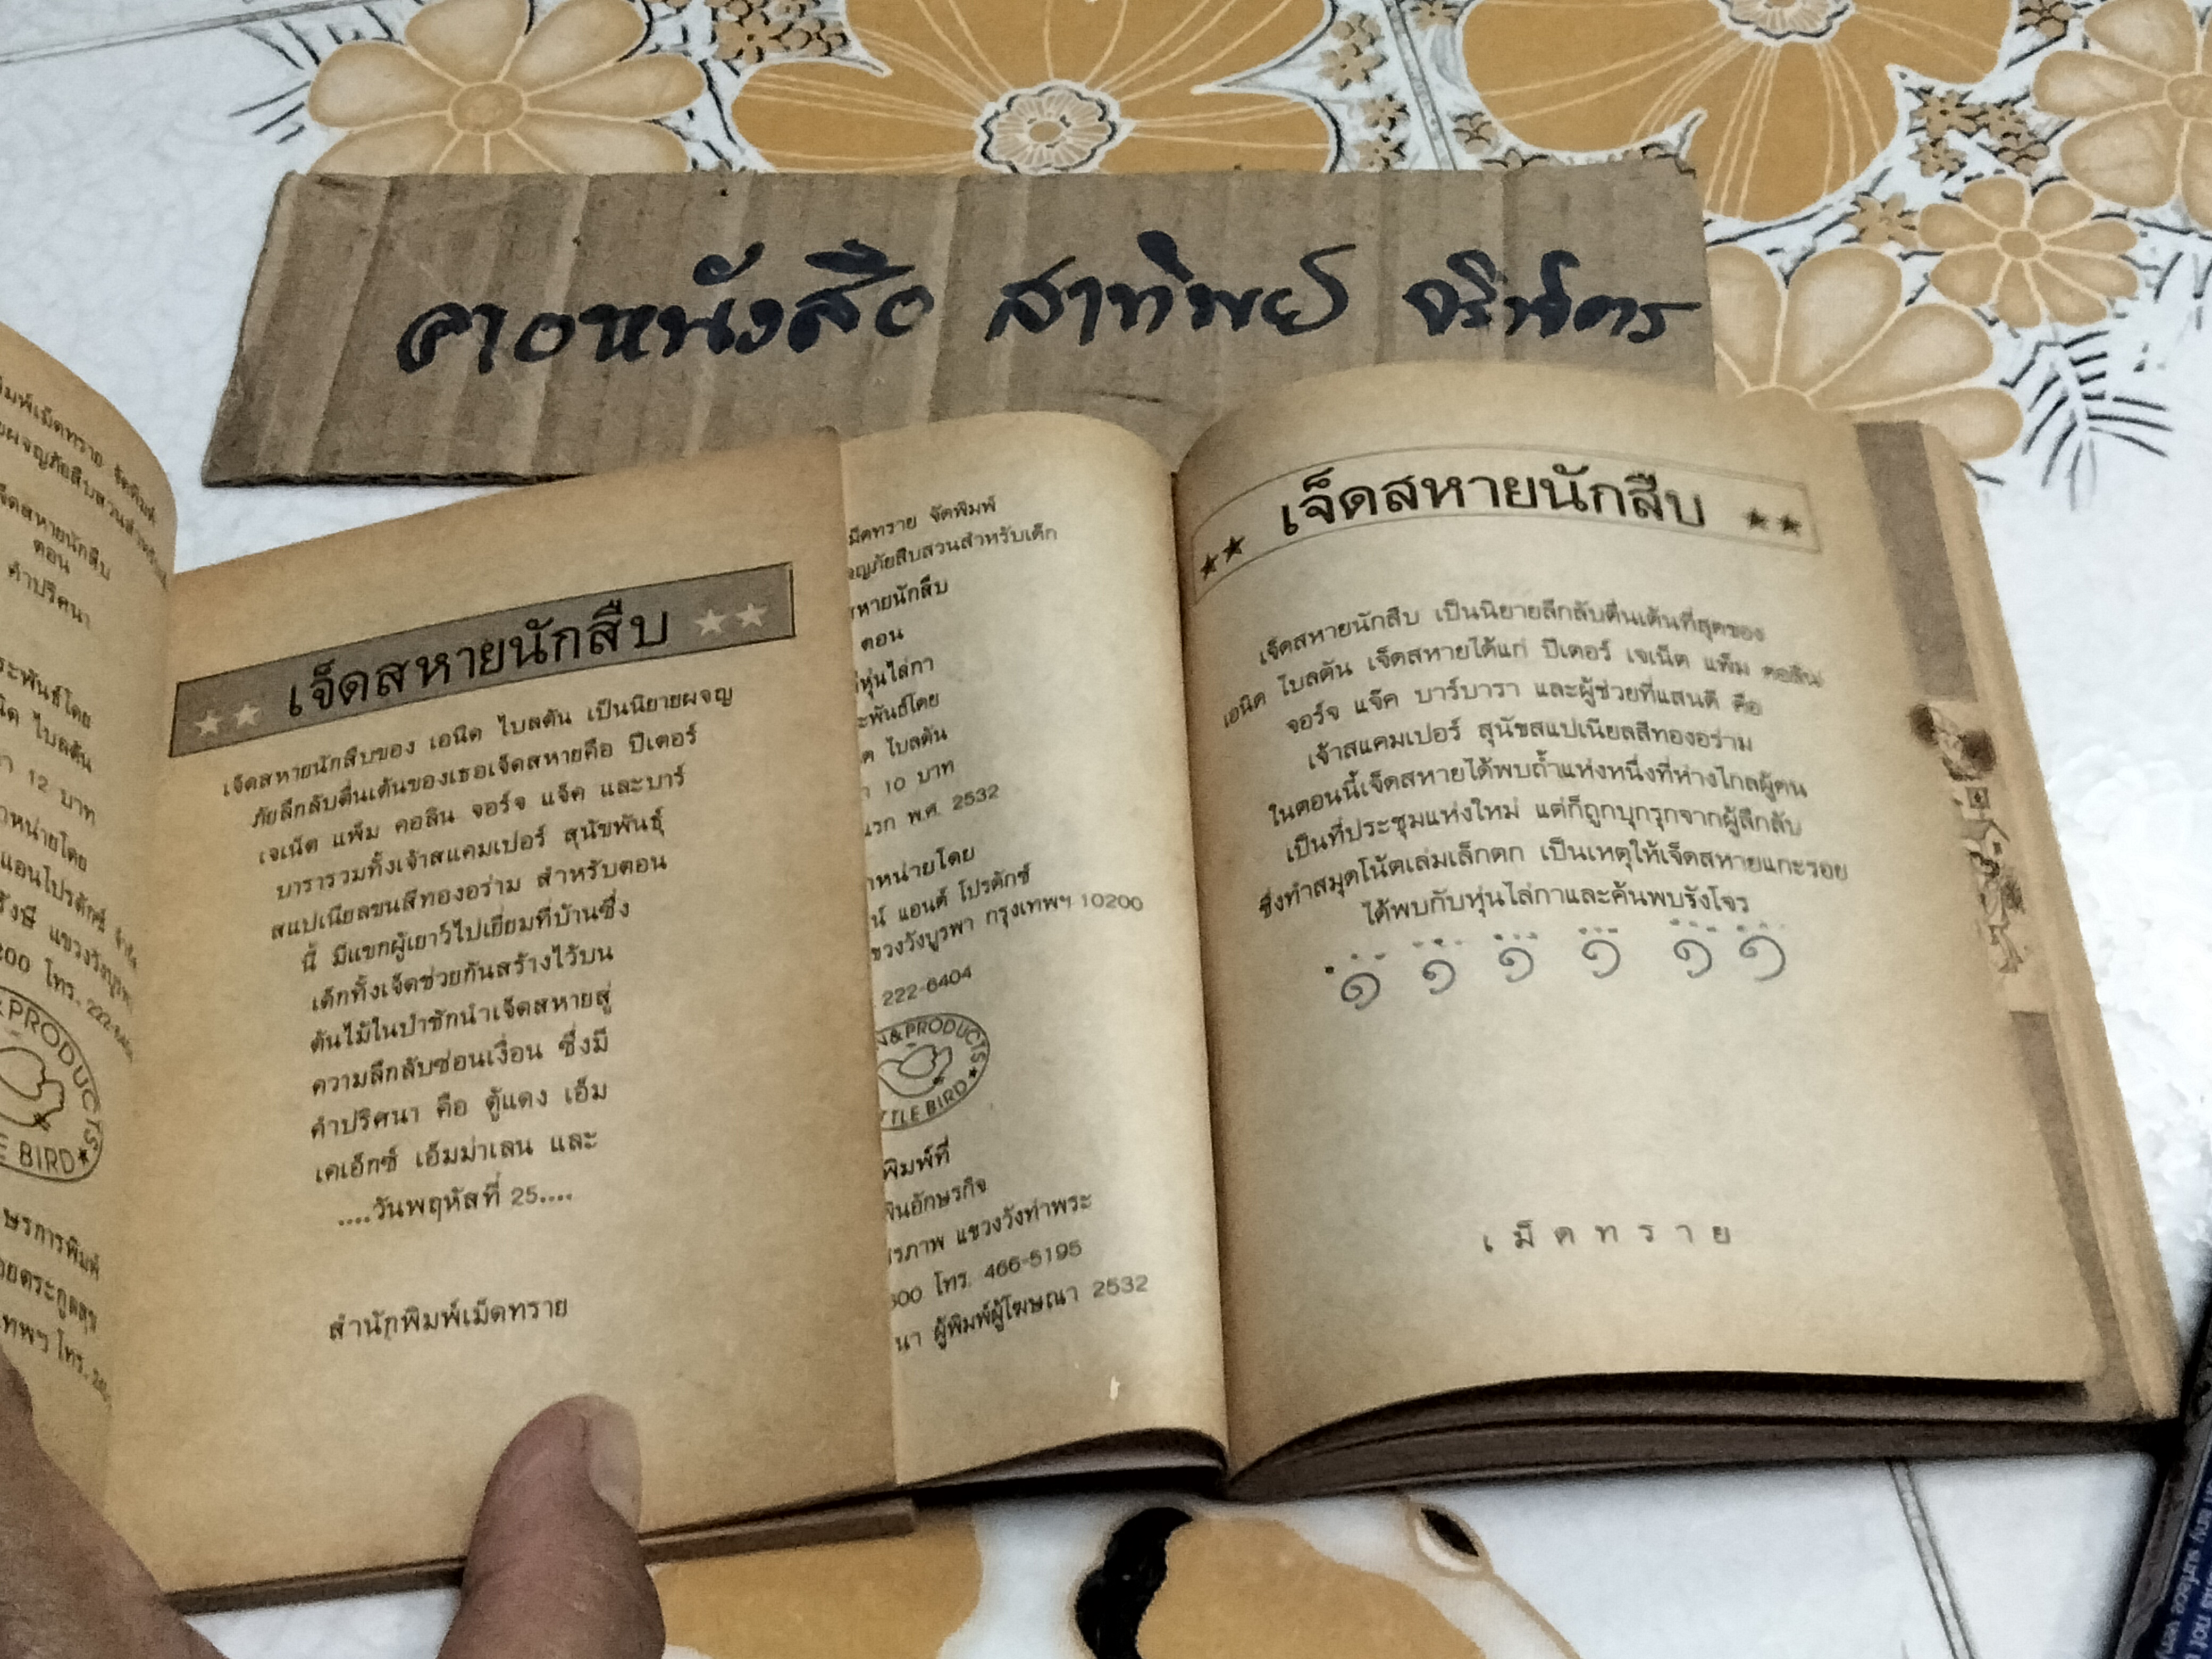 คาอหนังสือ สาทิพย์
มพ์เม็ดทราย จัดพิมพ์
ยผจญภัยสืบสวนสำหรับ
จ็ดสหายนักสืบ
ตอน
คำปริศนา
ระพันธ์โดย
นิด ไบลตัน
า 12 บาท
หน่ายโดย
แอนโปรดักซ์
รังษี แขวงวังบูรพา
200 โทร. 222-6404
&PRODUCTS
E BIRD
ษรการพิมพ์
ยตระกูลสุข
เทพฯ โทร.
★★ เจ็ดสหายนักสืบ ★★
เจ็ดสหายนักสืบของ เอนิด ไบลตัน เป็นนิยายผจญ
ภัยลึกลับตื่นเต้นของเธอเจ็ดสหายคือ ปีเตอร์
เจเน็ต แพ็ม คอลิน จอร์จ แจ็ค และบาร์
บารารวมทั้งเจ้าสแคมเปอร์ สุนัขพันธุ์
สแปเนียลขนสีทองอร่าม สำหรับตอน
นี้ มีแขกผู้เยาว์ไปเยี่ยมที่บ้านซึ่ง
เด็กทั้งเจ็ดช่วยกันสร้างไว้บน
ต้นไม้ในป่าชักนำเจ็ดสหายสู่
ความลึกลับซ่อนเงื่อน ซึ่งมี
คำปริศนา คือ ตู้แดง เอ็ม
เคเอ็กซ์ เอ็มม่าเลน และ
....วันพฤหัสที่ 25....
สำนักพิมพ์เม็ดทราย
ม็ดทราย จัดพิมพ์
ญภัยสืบสวนสำหรับเด็ก
หายนักสืบ
ตอน
หุ่นไล่กา
ะพันธ์โดย
ค ไบลตัน
า 10 บาท
แรก พ.ศ. 2532
าหน่ายโดย
น์ แอนด์ โปรดักซ์
ขวงวังบูรพา กรุงเทพฯ 10200
222-6404
N&PRODUCTS
TTLE BIRD
พิมพ์ที่
ินอักษรกิจ
รภาพ แขวงวังท่าพระ
600 โทร. 466-5195
นา ผู้พิมพ์ผู้โฆษณา 2532
★★ เจ็ดสหายนักสืบ ★★
เจ็ดสหายนักสืบ เป็นนิยายลึกลับตื่นเต้นที่สุดของ
เอนิด ไบลตัน เจ็ดสหายได้แก่ ปีเตอร์ เจเน็ต แพ็ม คอลิน
จอร์จ แจ็ค บาร์บารา และผู้ช่วยที่แสนดี คือ
เจ้าสแคมเปอร์ สุนัขสแปเนียลสีทองอร่าม
ในตอนนี้เจ็ดสหายได้พบถ้ำแห่งหนึ่งที่ห่างไกลผู้คน
เป็นที่ประชุมแห่งใหม่ แต่ก็ถูกบุกรุกจากผู้ลึกลับ
ซึ่งทำสมุดโน้ตเล่มเล็กตก เป็นเหตุให้เจ็ดสหายแกะรอย
ได้พบกับหุ่นไล่กาและค้นพบรังโจร
เม็ดทราย